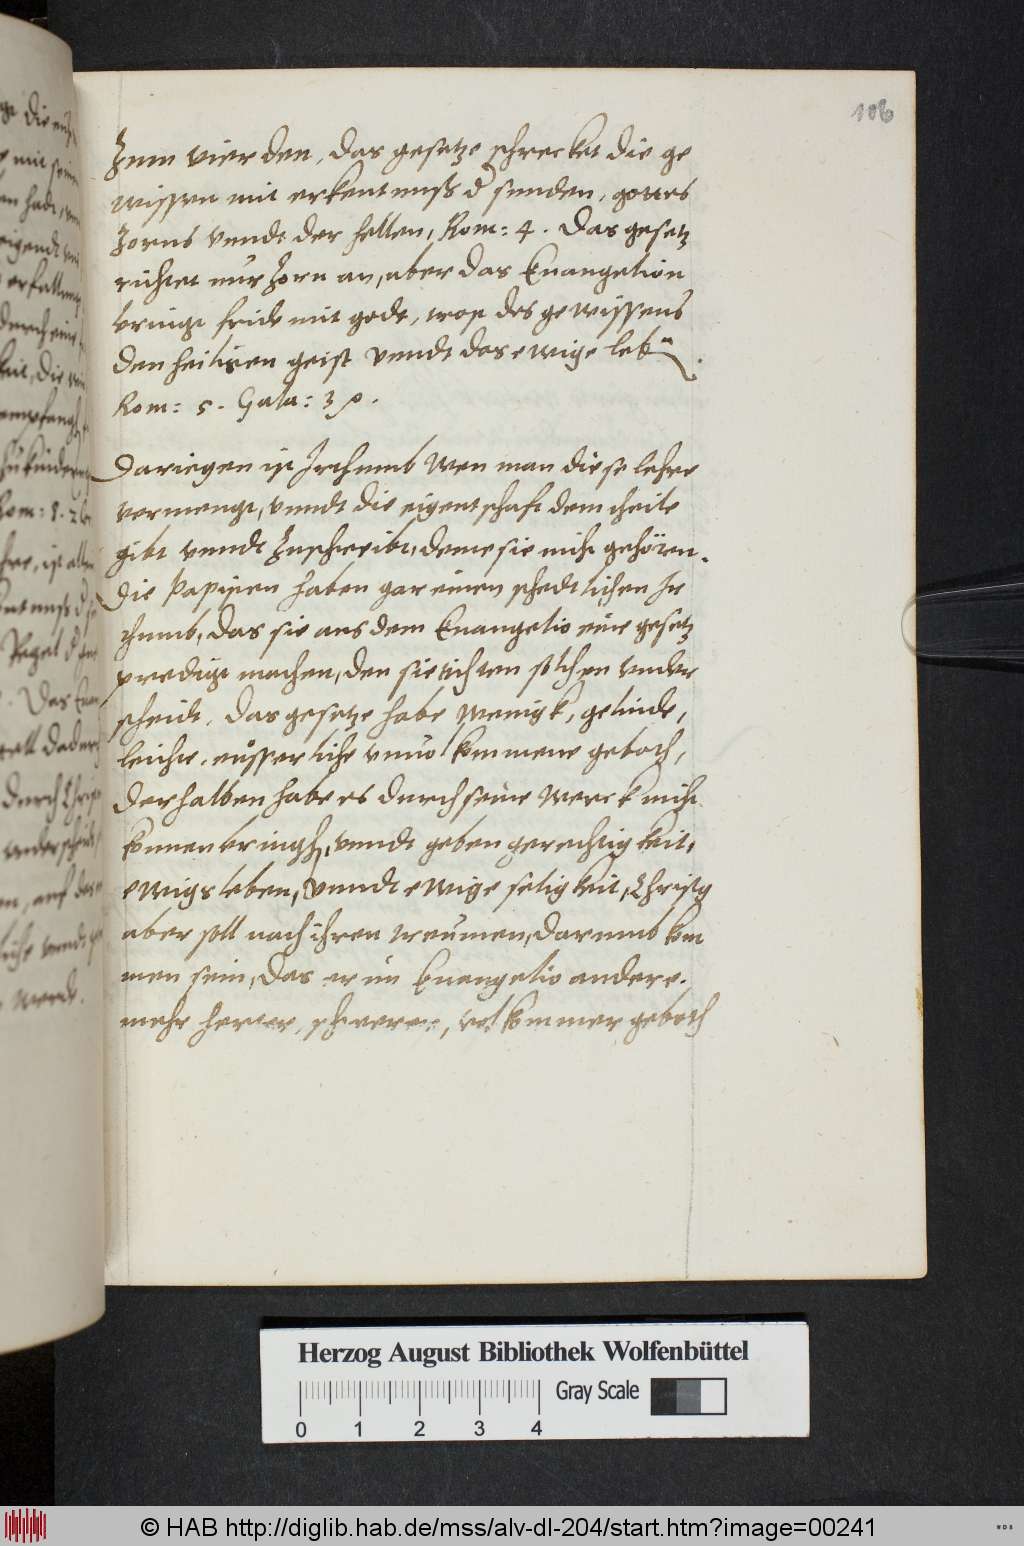 106
Zum vierden, das gesetze schrecket die ge
wissen mit erkentnuß d sunden, gottes
Zorns vnndt der hellen, Rom: 4. Das gesetz
richtet nur Zorn an, aber das Euangelion
bringt fride mit gode, trost des gewissens
den heiligen geist vnndt das ewige leb
Rom: 5. Gala: 3
Dariegen ist Irthumb wen man diese lehre
vermengt, vnndt die eigentschaft dem theile
gibt vnndt Zuschreibt, deme sie nicht gehören.
Die Papisten haben gar einen schedtlichen Ir
thumb, das sie aus dem Euangelio eine gesetz
predigt machen, den sie tichten solchen vnder
scheidt. Das gesetze habe wenigk, gelinde,
leichte, eusserliche vnuolkommene geboth,
Derhalben habe es durch seine werck nicht
können bringen, vnndt geben gerechtigkeit,
ewigs leben, vnndt ewige seligkeit, Christg
aber soll nach ihren treumen, darumb kom
men sein, das er im Euangelio andere.
mehr herter, schwerer, volkommer geboth
Herzog August Bibliothek Wolfenbüttel
0 1 2 3 4 Gray Scale
© HAB http://diglib.hab.de/mss/alv-dl-204/start.htm?image=00241